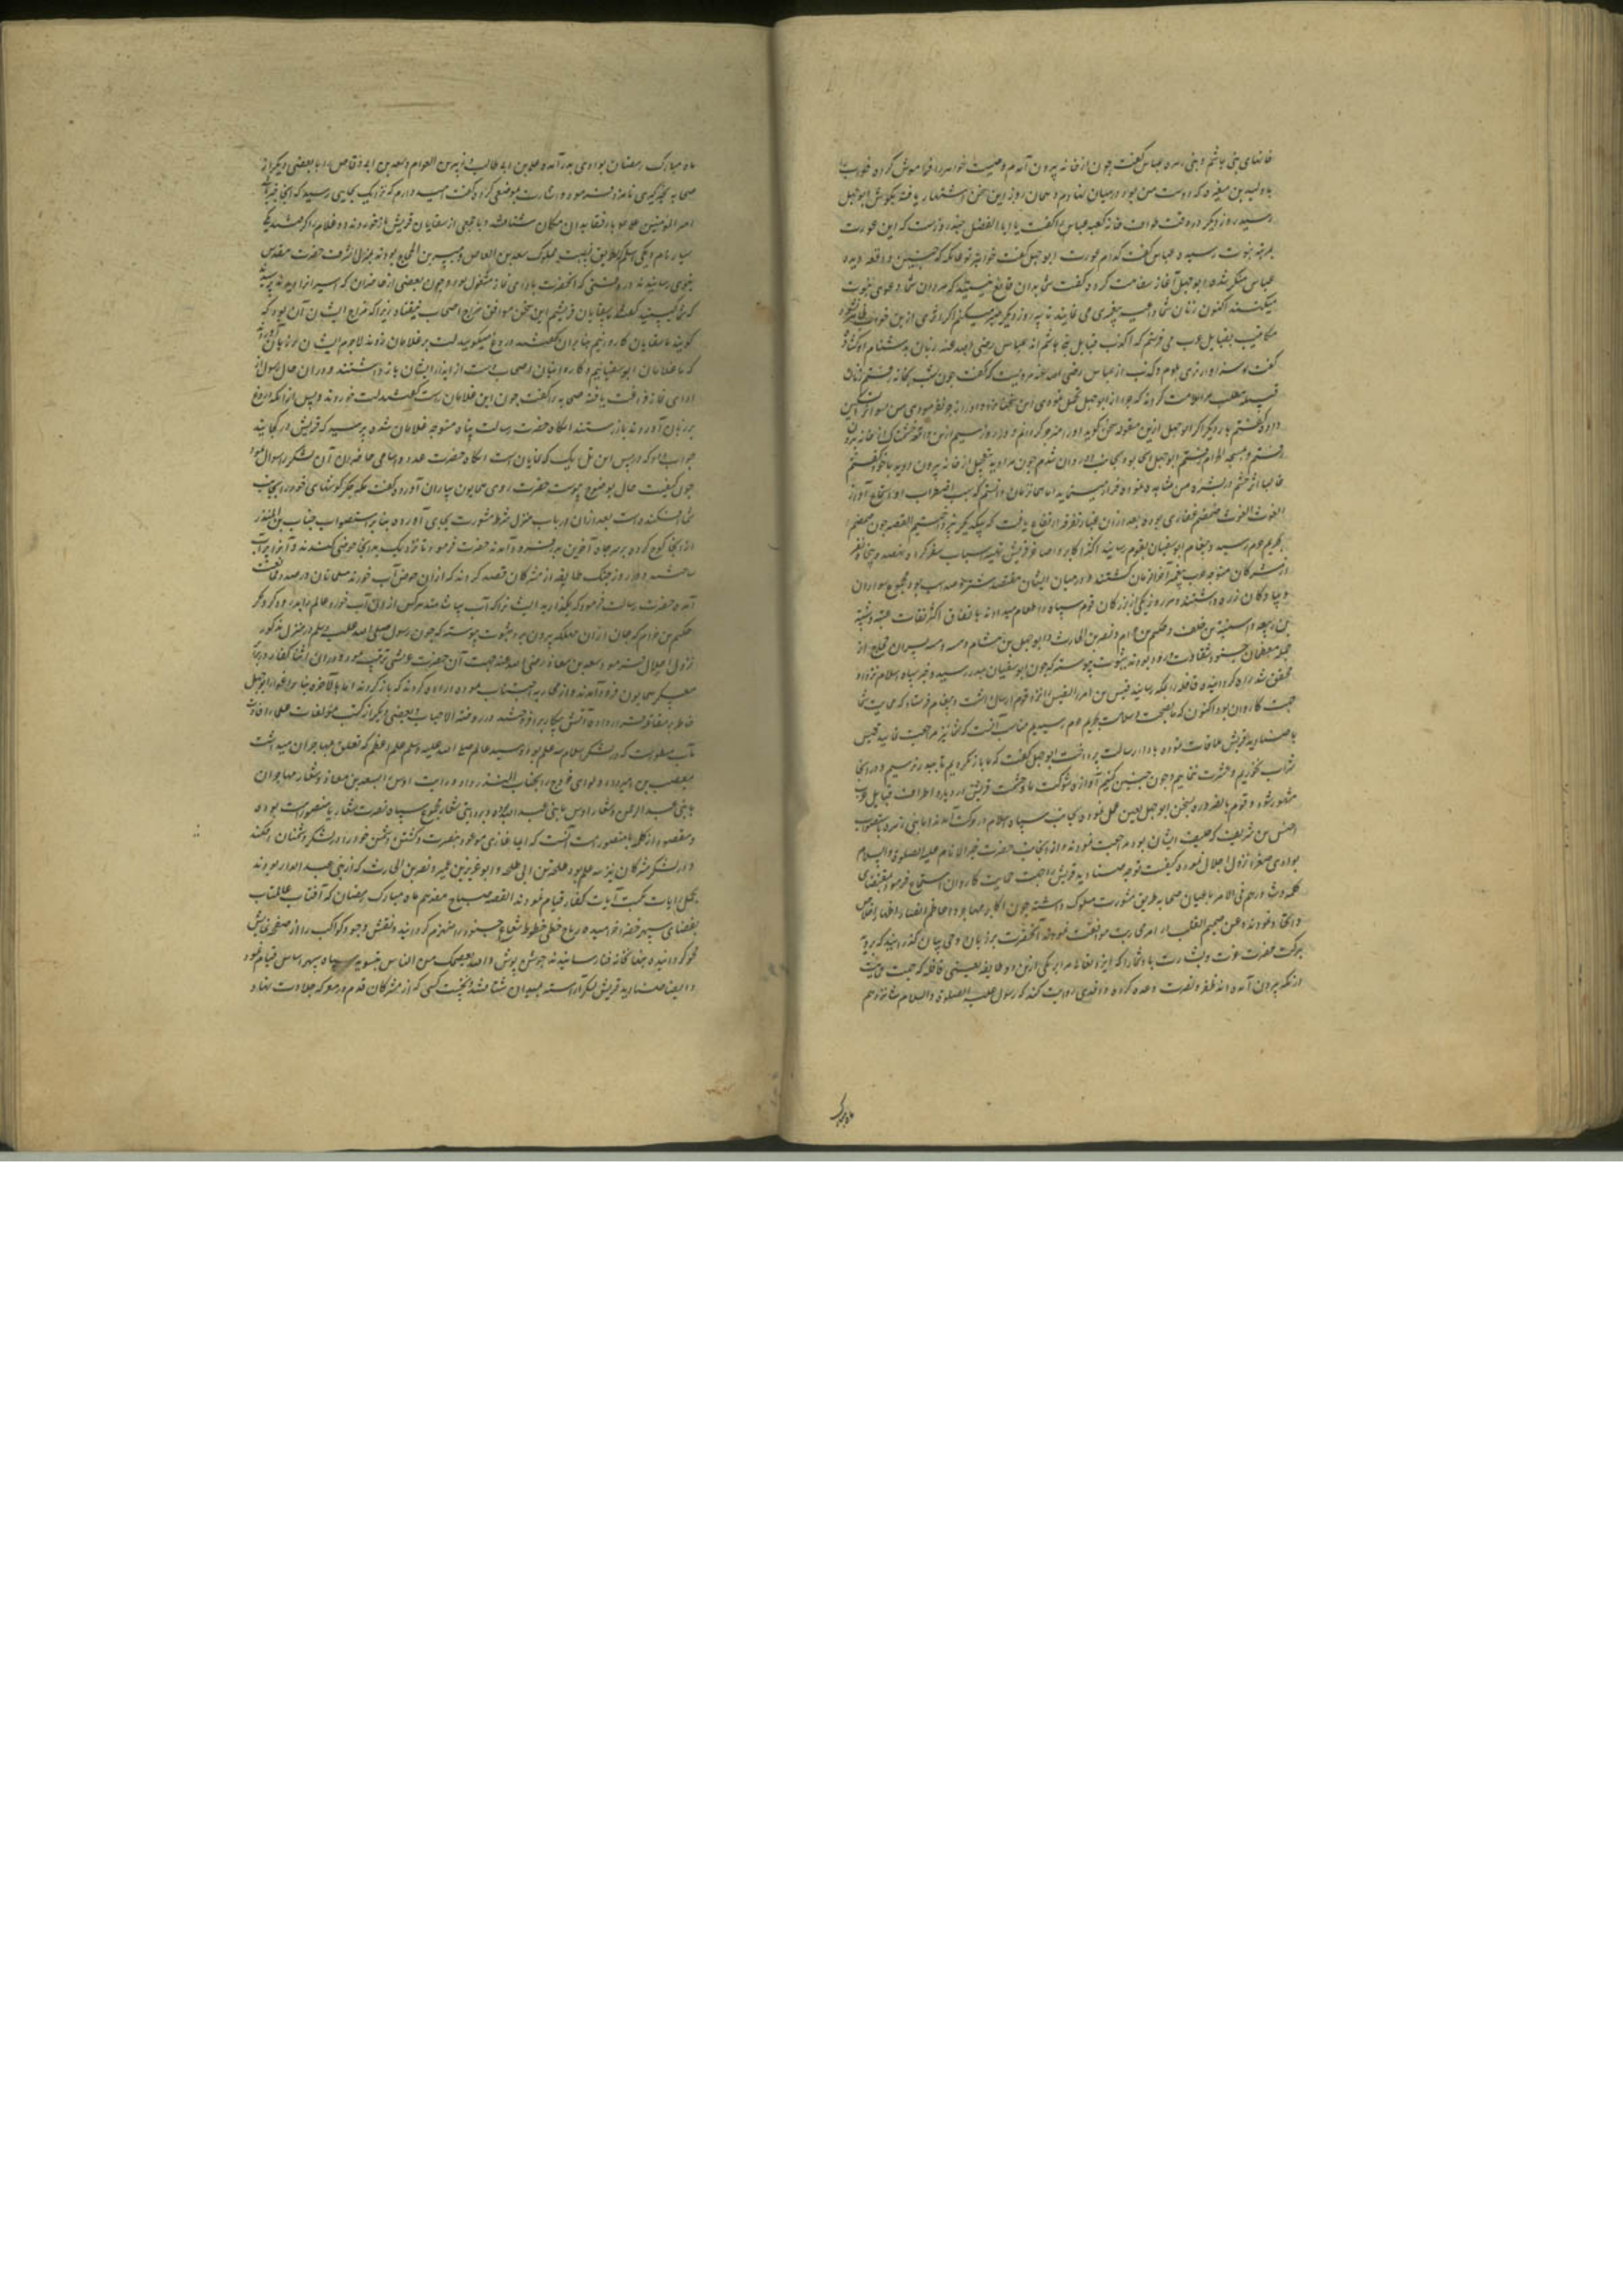 خانهای بنی هاشم و بنی زهره عباس گفت چون از خانه بیرون آمدم وصیت خواهر را فراموش کرده
با ولید بن مغیره که دوست من بود در میان نهادم و همان روز این سخن اشتهار یافته بگوش ابوجهل
رسید روز دیگر در وقت طواف خانه کعبه عباس را گفت یا ابا الفضل چند روزست که این عورت
بمرتبه نبوت رسیده عباس گفت کدام عورت ابوجهل گفت خواهر تو عاتکه که چنین واقعه دیده
عباس منکر شد و ابوجهل آغاز سفاهت کرده گفت شما بدان قانع نیستید که مردان شما دعوی نبوت
میکنند اکنون زنان شما دعوی پیغمبری می نمایند تا سه روز دیگر صبر میکنیم اگر اثری ازین خواب
مکاتیب بقبایل عرب می فرستم که اکذب قبایل بنی هاشم اند عباس رضی الله عنه زبان بدشنام او گشاد
گفت ای سزاوارتری بلوم و کذب از عباس رضی الله عنه مرویست که گفت چون شب بخانه رفتم زنان
قبیله عبد المطلب مرا ملامت کردند که چرا از ابوجهل تحمل نمودی
داده گفتم بار دیگر اگر ابوجهل ازین مقوله سخن گوید او را منزجر گردانم و روز سیم ازین واقعه خشمناک از خانه بیرون
رفتم و بمسجد الحرام رفتم ابوجهل آنجا بود بجانب او روان شدم چون مرا دید بتعجیل از خانه بیرون دوید با خود گفتم
غالبا اثر خشم در بشره من مشاهده نموده فرار مینماید اما همان زمان دانستم که سبب اضطراب او استماع آواز
الغوث الغوث ضمضم غفاری بوده بعد از آن غبار تفرقه ارتفاع یافت که بیکدیگر نپرداختیم القصه چون ضمضم
بحریم حرم رسید و پیغام ابوسفیان بقوم رسانید اکثر اکابر و اصاغر قریش تهیه اسباب سفر کرده نهصد و پنجاه نفر
از مشرکان متوجه حرب پیغمبر آخر زمان گشتند و در میان ایشان هفتصد شتر و صد اسب بود و مجموع سواران
و پیادگان زره داشتند و هر روز یکی از بزرگان قوم سپاه را طعام میداد باتفاق اکثر ثقات عتبه و شیبه
بن ربیعه و امیة بن خلف و حکیم بن حزام و نضر بن الحارث و ابوجهل بن هشام و سهیل و پسران حجاج از
جمله مطعمان جنود شقاوت ورود بودند بثبوت پیوسته که چون ابوسفیان ببدر رسید و خبر سپاه اسلام نزد او
محقق شد راه گردانیده قافله را بمکه رسانید قیس بن امرء القیس را نزد قوم ارسال داشت و پیغام فرستاد که حمایت شما
جهت کاروان بود اکنون که ما بصحت و سلامت بحریم حرم رسیدیم مناسب آنست که شما نیز مراجعت نمایید قیس
با صنادید قریش ملاقات نموده بادای رسالت پرداخت ابوجهل گفت که ما باز نگردیم تا ببدر نرسیم و در آنجا
شراب نخوریم و عشرت ننماییم و چون چنین کنیم آوازه شوکت ما و حشمت قریش در دیار و اطراف قبایل عرب
مشهور شود و قوم بالضروره بسخن ابوجهل لعین عمل نموده بجانب سپاه اسلام در حرکت آمدند اما بنی زهره باستصواب
اخنس بن شریق که حلیف ایشان بود مراجعت نمودند و از آنجانب حضرت خیر الانام علیه الصلوة والسلام
بوادی صفرا نزول اجلال نموده کیفیت توجه صنادید قریش را جهت حمایت کاروان استماع فرمود بمقتضای
کلمه و شاورهم فی الامر با اعیان صحابه طریق مشورت مسلوک داشته چون اکابر مهاجر و اعاظم انصار اظهار اخلاص
و اتحاد نموده عن صمیم القلب در امر محاربت موافقت نمودند آنحضرت بر زبان وحی بیان گذرانید که بروید
ببرکت حضرت عزت و بشارت باد شما را که ایزد تعالی مرا بر یکی ازین دو طایفه یعنی قافله که جهت حمایت
از مکه بیرون آمده اند ظفر و نصرت وعده کرده و واقدی روایت کند که رسول علیه الصلوة والسلام شانزدهم
ماه مبارک
ماه مبارک رمضان بوادی بدر آمد و علی بن ابی طالب و زبیر بن العوام و سعد بن ابی وقاص را با بعضی دیگر از
صحابه بخبرگیری نامزد فرمود و اشارت بموضعی کرد و گفت امید دارم که نزدیک بچاهی رسید که آنجا خبری
امیر المؤمنین علی با رفقا بدان مکان شتافتند و با جمعی از سقایان قریش باز خوردند دو غلام را گرفتند یکی
یسار نام و یکی اسلم
بنوی رسانیدند در وقتی که آنحضرت بادای نماز مشغول بود و چون بعضی از حاضران که اسیرانرا دیدند پرسیدند
که شما کیستید گفتند سقایان قریشیم این سخن موافق مزاج اصحاب نیفتاد زیرا که مزاج ایشان آن بود که
گویند ما سقایان کاروانیم بنابران گفتند دروغ میگویید لت بر غلامان زدند لاجرم ایشان بر زبان آوردند
که ما غلامان ابوسفیانیم و کاروانیان اصحاب دست از ایذاء ایشان باز داشتند و در آن حال رسول از
ادای نماز فراغت یافته صحابه را گفت چون این غلامان راست گفتند لت خوردند و پس از آنکه دروغ
بر زبان آوردند باز رستند آنگاه حضرت رسالت پناه متوجه غلامان شده پرسید که قریش در کجایند
جواب داد که در پس این تل ریگ که نمایان است آنگاه حضرت عدد و اسامی حاضران آن لشکر را سوال نمود
چون کیفیت حال بوضوح پیوست حضرت روی همایون بیاران آورده گفت مکه جگرگوشهای خود را بجانب
شما افکنده است بعد از آن ارباب منزل شرط مشورت بجای آورده بنابر استصواب حباب بن المنذر
از آنجا کوچ کرده بر سر چاه آخرین بدر فرود آمدند حضرت فرمود تا نزدیک بدان چاه حوضی کندند و آنرا پر آب
ساختند و در روز جنگ طایفه از مشرکان قصد کردند که از آن حوض آب خورند مسلمانان در صدد ممانعت
آمدند حضرت رسالت فرمود که بگذارید ایشانرا که آب بیاشامند هرکس از آن آب خورد و عالم را بدرود کرد مگر
حکیم بن حزام که جان از آن مهلکه بیرون برد و بثبوت پیوسته که چون رسول صلی الله علیه وسلم در منزل مذکور
نزول اجلال فرمود سعد بن معاذ رضی الله عنه جهت آن حضرت عریشی ترتیب نمود و در آن اثنا کفار در برابر
معسکر همایون فرود آمدند و از محاربه اجتناب نموده اراده کردند که باز گردند اما بالاخره بنابر اغوای ابوجهل
خاطر بر مقاتله قرار داده آتش پیکار برافروختند در روضة الاحباب و بعضی دیگر از کتب مؤلفات علماء افادت
مآب مسطورست که در لشکر اسلام سه علم بود و سید عالم صلی الله علیه وسلم علم اعظم که تعلق بمهاجران میداشت
بمصعب بن عمیر داد و لوای خزرج را بحباب المنذر داد و رایت اوس را بسعد بن معاذ و شعار مهاجران
یا بنی عبد الرحمن و شعار اوس یا بنی عبد الله بود و بروایتی شعار مجموع سپاه نصرت شعار یا منصور امت بوده
و مقصود از کلمه یا منصور امت آنست که ایا غازی موعود بنصرت و کشتن دشمن خود را در لشکر دشمنان افکند
و در لشکر مشرکان نیز سه علم بود طلحة بن ابی طلحه و ابو عزیز بن عمیر و نضر بن الحارث که از بنی عبد الدار بودند
بحمل رایات نکبت آیات کفار قیام نمودند القصه صباح هفدهم ماه مبارک رمضان که آفتاب عالمتاب
بفضای سپهر خضرا خرامید و ارماح خطی خطوط شعاع جنود را منهزم گردانید و نقش وجود کواکب را از صفحه
محو گردانیده
و ایضا صنادید قریش لشکر آراسته بمیدان شتافتند و نخست کسی که از مشرکان قدم در معرکه جلادت نهاد